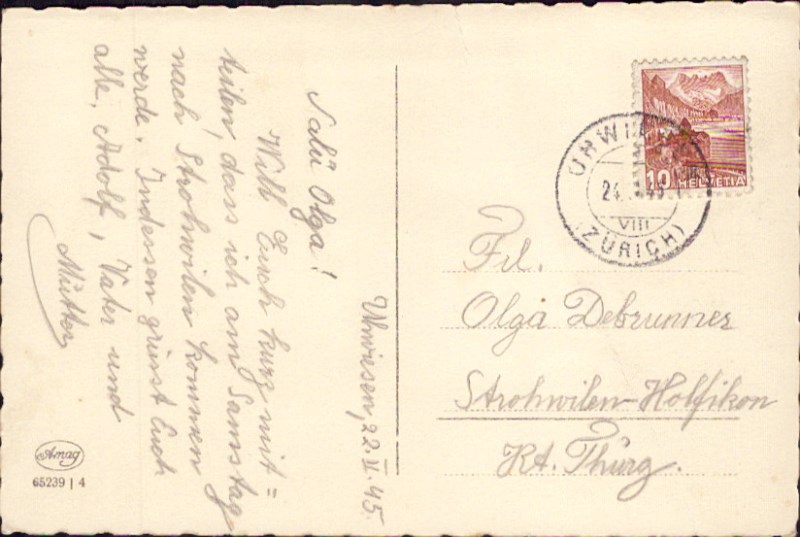 Uhwiesen, 22. V. 45.
Salü Olga!
Will Euch kurz mit=
teilen, dass ich am Samstag
nach Strohwilen kommen
werde. Indessen grüsst Euch
alle, Adolf, Vater und
Mutter
Amag
65239 | 4
10 HELVETIA
UHWI
24.
VIII
(ZÜRICH)
Frl.
Olga Debrunner
Strohwilen-Holfikon
Kt. Thurg.